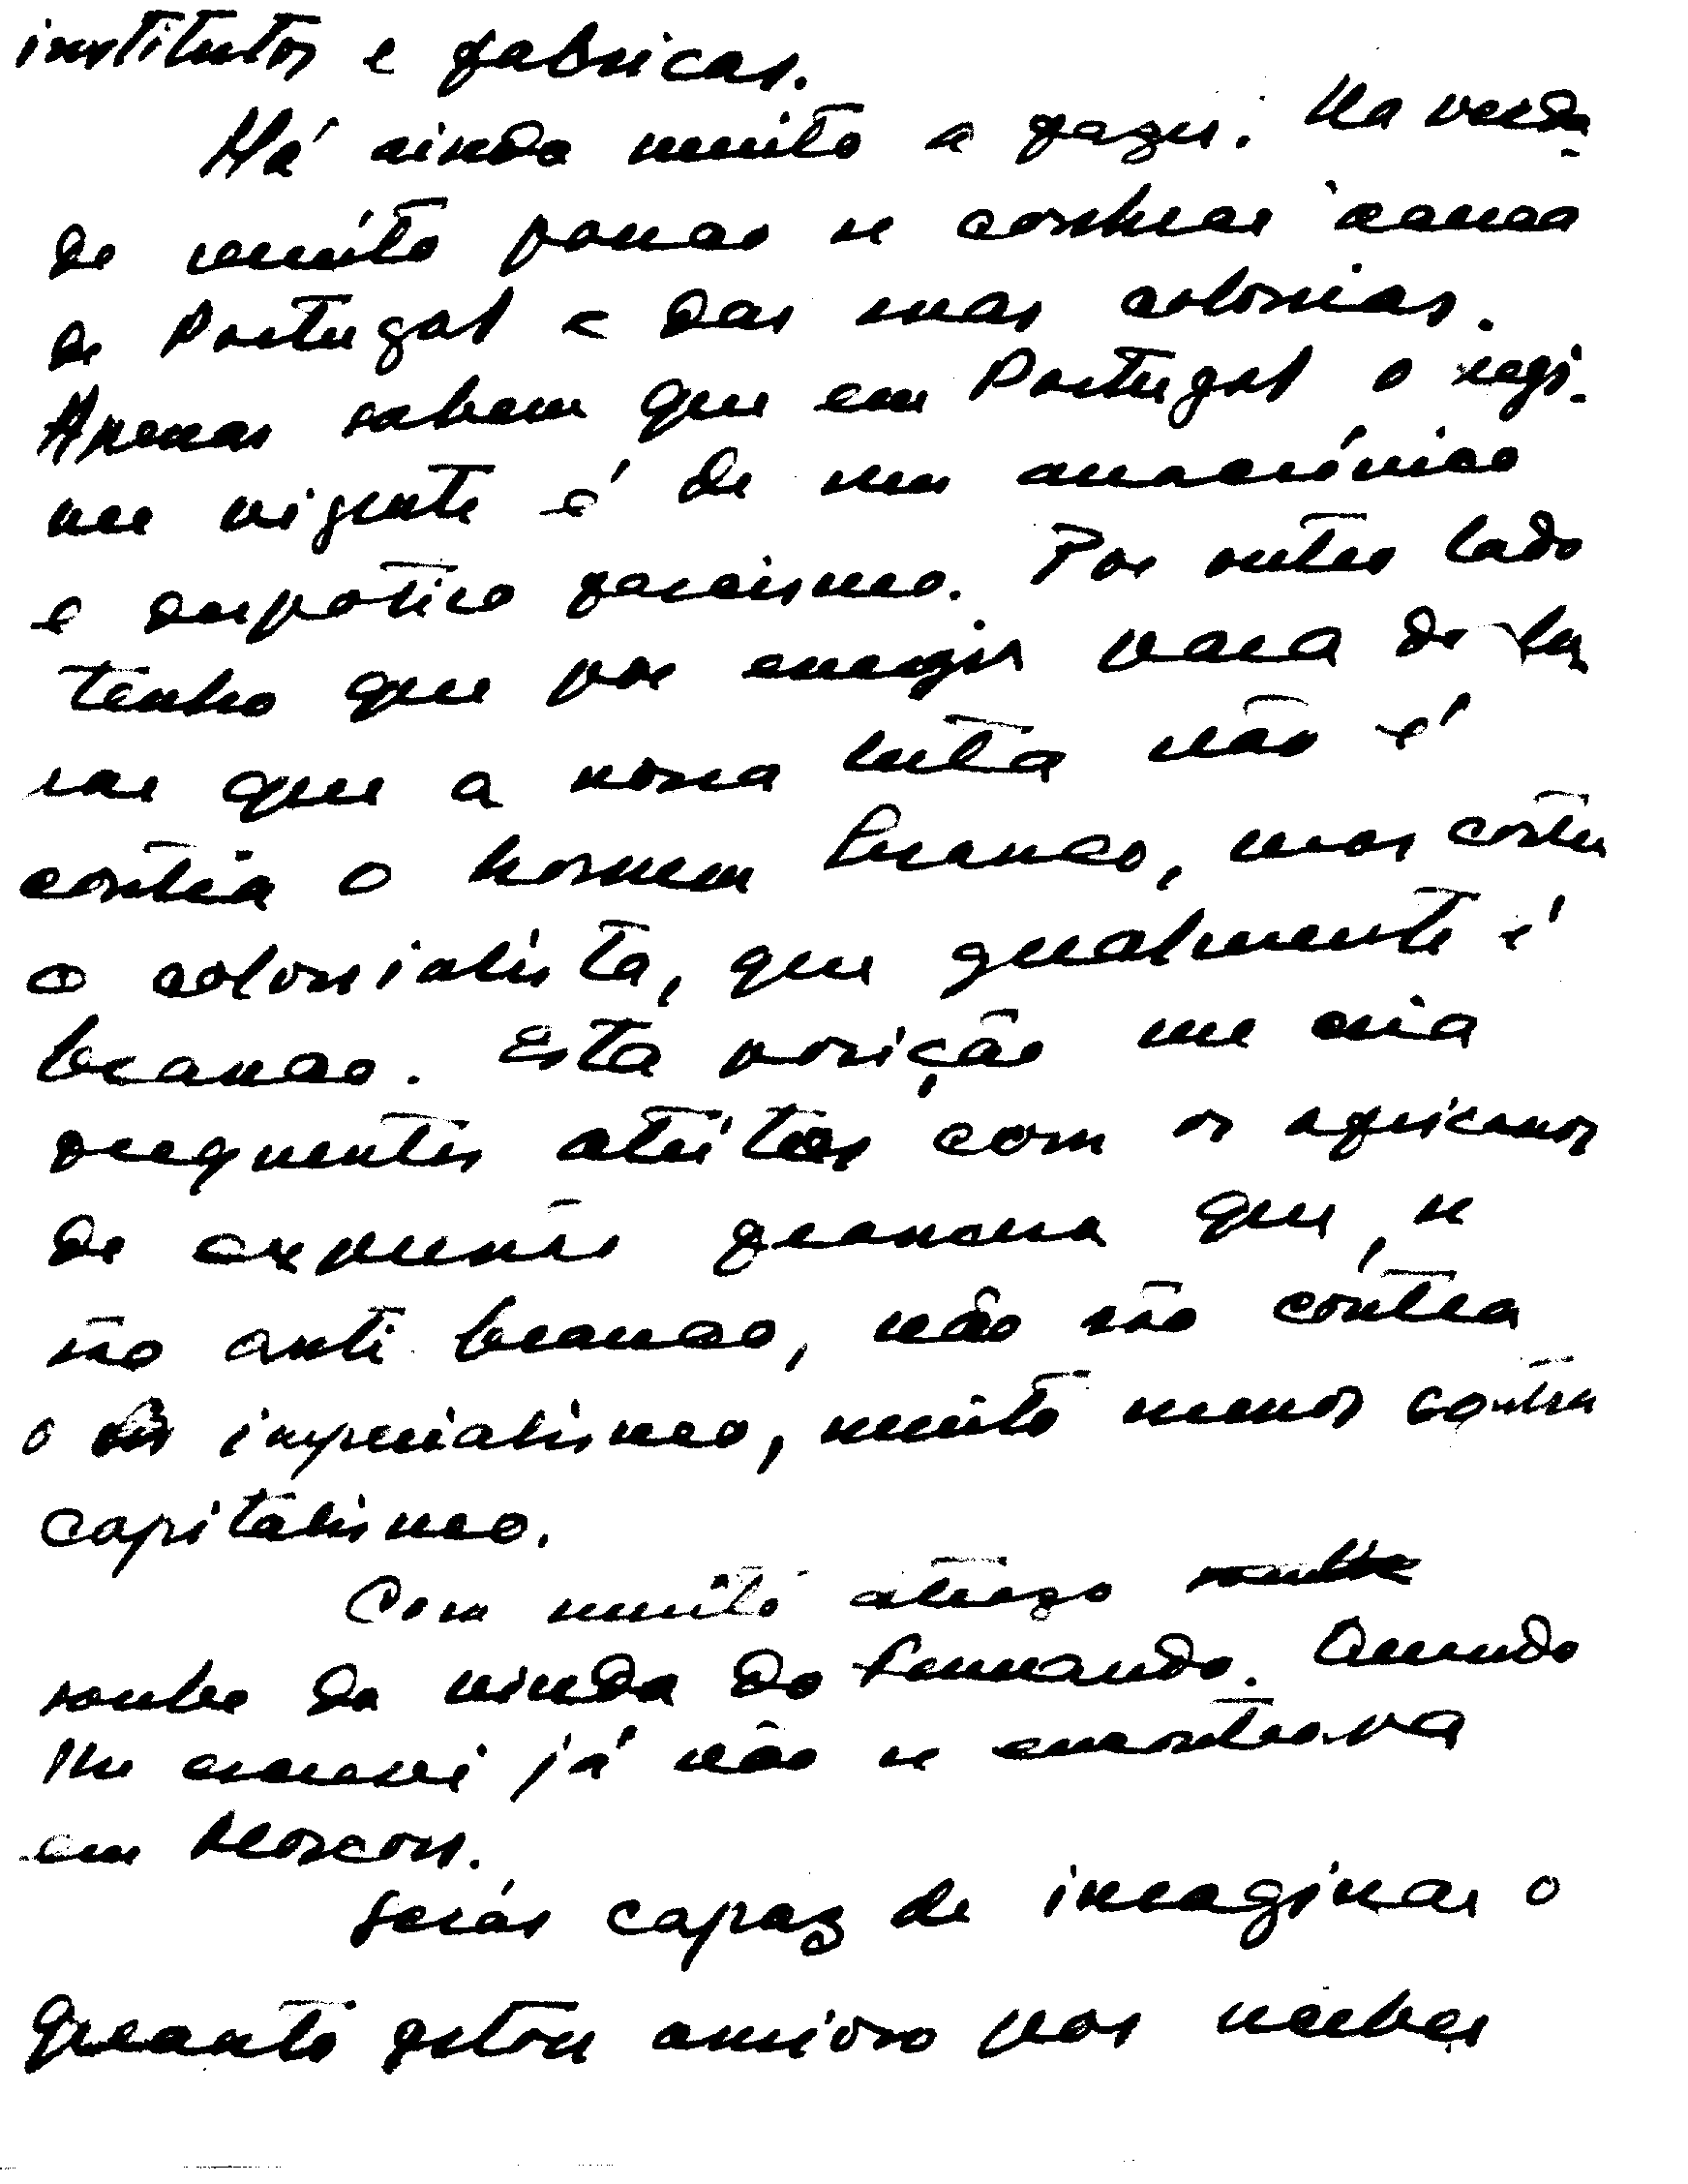 institutos e fabricas.
Há ainda muito a fazer. Na verda-
de muito pouco se conhece àcerca
de Portugal e das suas colonias.
Apenas sabem que em Portugal o regi-
me vigente é de um anacrónico
e despótico fascismo. Por outro lado
tenho que por energia para de la
rar que a nossa luta não é
contra o homem branco, mas contra
o colonialista, que igualmente é
branco. Esta posição me cria
frequentes atritos com os africanos
de expressão francesa que, se
são anti branco, não são contra
o imperialismo, muito menos contra
capitalismo.
Com muito atrazo
soube da vinda do Fernando. Quando
lhe escrevi já não se encontrava
em Moscou.
Serás capaz de imaginar o
quanto estou ansioso por receber